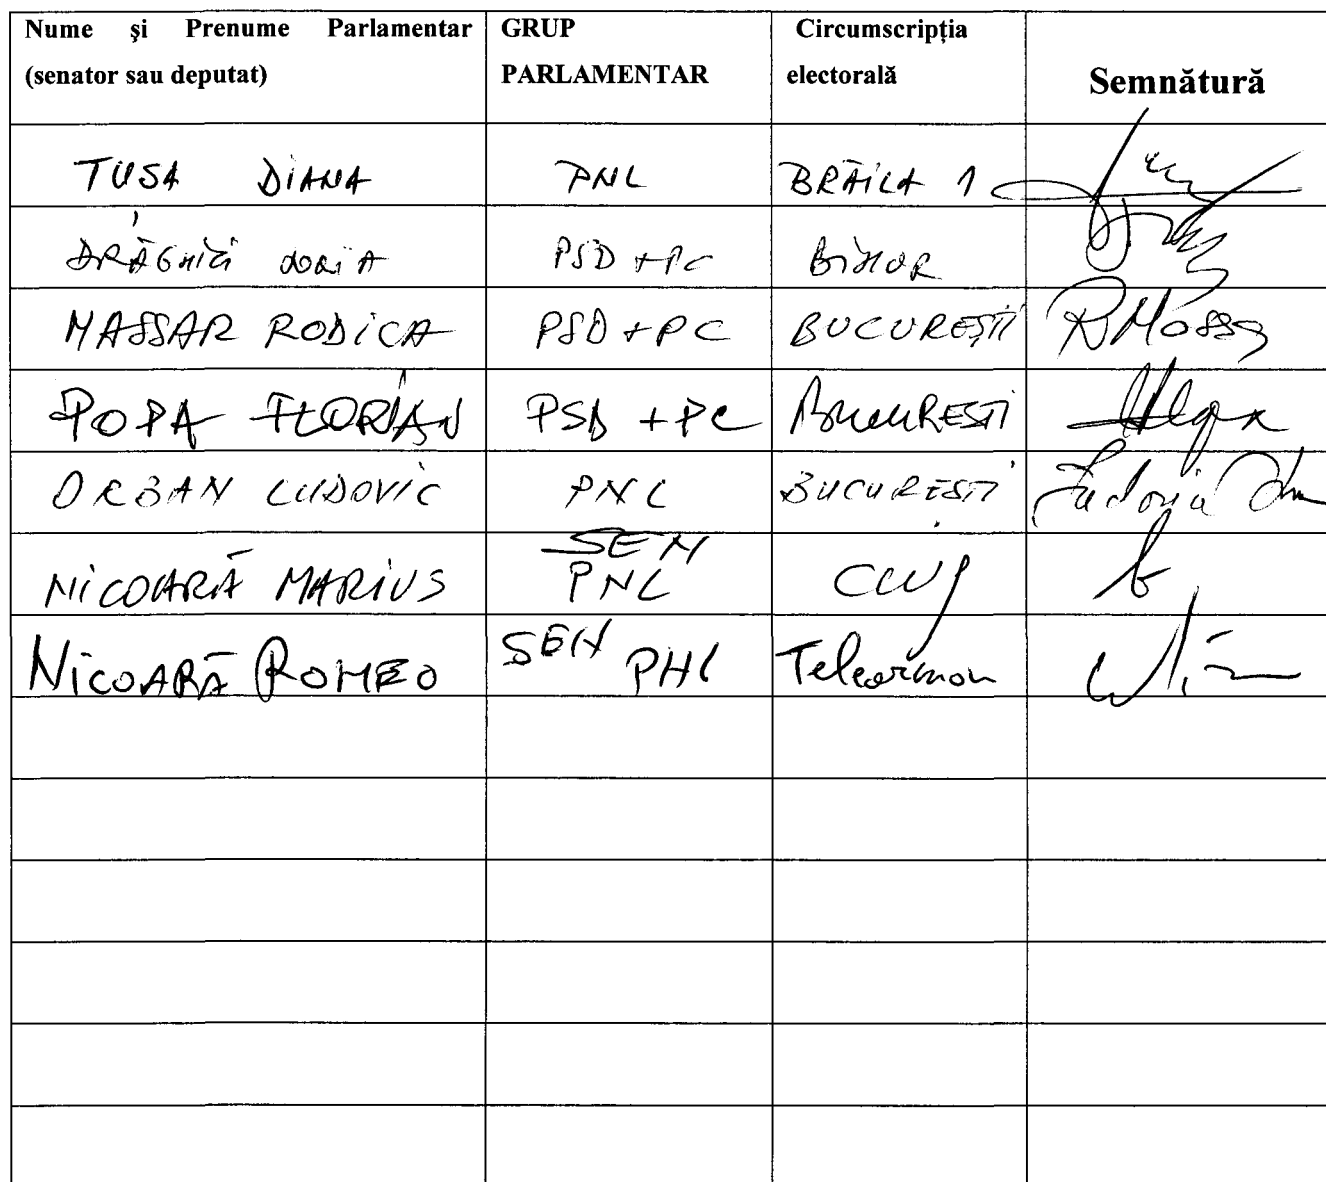 Nume şi Prenume Parlamentar (senator sau deputat) GRUP PARLAMENTAR Circumscripţia electorală Semnătură
TUSA DIANA PNL BRĂILA 1
DRĂGHICI PSD + PC BIHOR
NASSAR RODICA PSD + PC BUCUREŞTI
POPA FLORIAN PSD + PC BUCUREŞTI
ORBAN LUDOVIC PNL BUCUREŞTI
SEN
NICOARĂ MARIUS PNL CLUJ
NICOARĂ ROMEO SEN PNL Teleorman